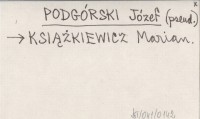 PODGÓRSKI Józef (pseud.)
→ KSIĄŻKIEWICZ Marian.